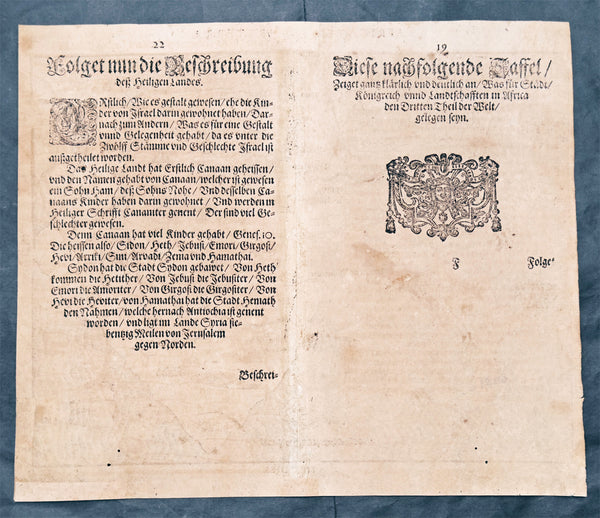 22
Folget nun die Beschreibung
deß Heiligen Landes.
ERstlich / Wie es gestalt gewesen / ehe die Kin-
der von Israel darin gewohnet haben / Dar-
nach zum Andern / Was es für eine Gestalt
vnnd Gelegenheit gehabt / da es vnter die
Zwölff Stämme vnd Geschlechte Israel ist
außgetheilet worden.
Das Heilige Landt hat Erstlich Canaan geheissen /
vnd den Namen gehabt von Canaan / welcher ist gewesen
ein Sohn Ham / deß Sohns Nohe / Vnd desselben Ca-
naans Kinder haben darin gewohnet / Vnd werden in
Heiliger Schrifft Cananiter genent / Der sind viel Ge-
schlechter gewesen.
Denn Canaan hat viel Kinder gehabt / Genes. 10.
Die heissen also / Sidon / Heth / Jebusi / Emori / Girgosi /
Hevi / Arriki / Sini / Arvadi / Zema vnd Hamathai.
Sydon hat die Stadt Sydon gebawet / Von Heth
kommen die Hetither / Von Jebusi die Jebusiter / Von
Emori die Amoriter / Von Girgosi die Girgositer / Von
Hevi die Heviter / von Hamathai hat die Stadt Hemath
den Nahmen / welche hernach Antiochia ist genent
worden / vnd ligt im Lande Syria sie-
bentzig Meilen von Jerusalem
gegen Norden.
Beschrei-
19
Diese nachfolgende Taffel /
Zeiget gantz klärlich vnd deutlich an / Was für Städt /
Königreich vnnd Landtschafften in Africa
den Dritten Theil der Welt /
gelegen seyn.
F
Folge-